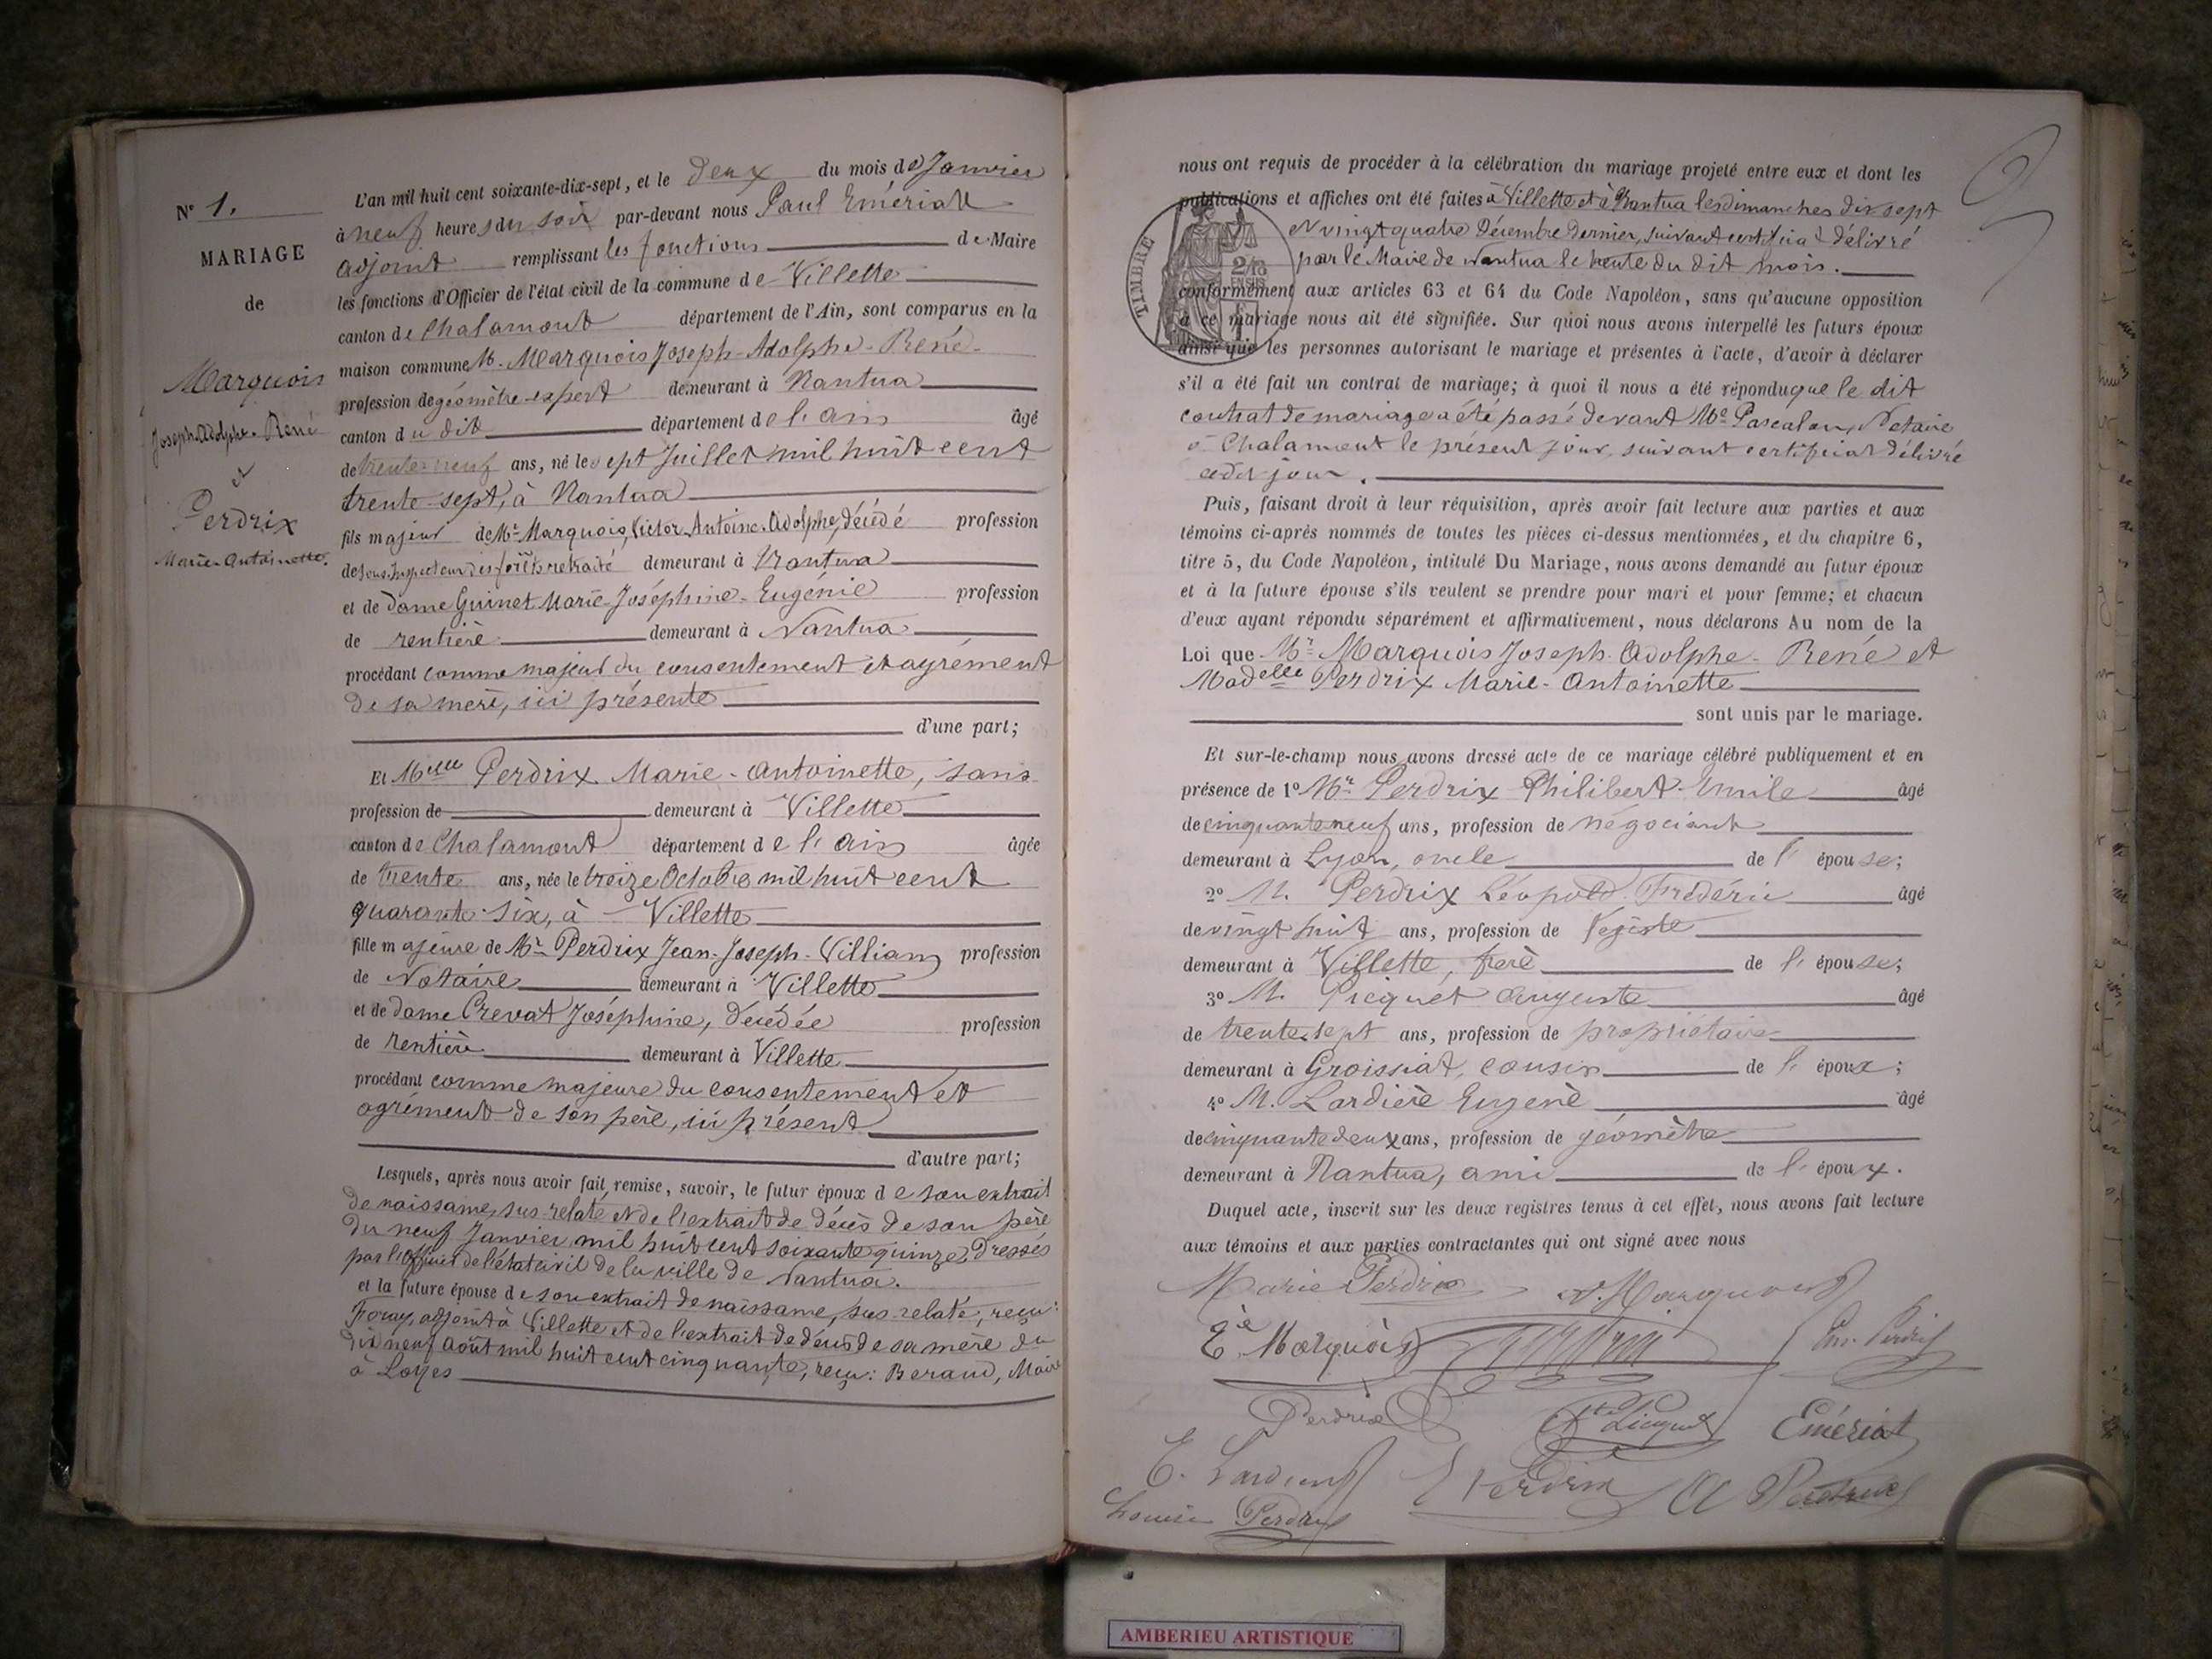 N° 1.
MARIAGE
de
Marquois
Joseph-Adolphe-René
et
Perdrix
Marie-Antoinette.
L'an mil huit cent soixante-dix-sept, et le deux du mois de Janvier
à neuf heures du soir par-devant nous Paul Emériat
adjoint remplissant les fonctions de Maire
les fonctions d'Officier de l'état civil de la commune de Villette
canton de Chalamont département de l'Ain, sont comparus en la
maison commune M. Marquois Joseph-Adolphe-René
profession de géomètre-expert demeurant à Nantua
canton du dit département de l'ain âgé
de trente-neuf ans, né le sept Juillet mil huit cent
trente-sept, à Nantua
fils majeur de Mr Marquois, Victor-Antoine-Adolphe, décédé profession
de sous-Inspecteur des forêts retraité demeurant à Nantua
et de Dame Guinet Marie-Joséphine-Eugénie profession
de rentière demeurant à Nantua
procédant comme majeur du consentement et agrément
de sa mère, ici présente
d'une part;
Et Melle Perdrix Marie-Antoinette, sans
profession de demeurant à Villette
canton de Chalamont département de l'ain âgée
de trente ans, née le treize Octobre mil huit cent
quarante-six, à Villette
fille majeure de Mr Perdrix Jean-Joseph-Villiam profession
de Notaire demeurant à Villette
et de dame Crevat Joséphine, décédée profession
de rentière demeurant à Villette
procédant comme majeure du consentement et
agrément de son père, ici présent
d'autre part;
Lesquels, après nous avoir fait remise, savoir, le futur époux de son extrait
de naissance, sus-relaté et de l'extrait de décès de son père
du neuf Janvier mil huit cent soixante quinze, Dressés
par l'officier de l'état civil de la ville de Nantua.
et la future épouse de son extrait de naissance, sus-relaté, reçu:
Foray, adjoint à Villette et de l'extrait de décès de sa mère du
dix neuf août mil huit cent cinquante, reçu: Beraud, Maire
à Loyes
nous ont requis de procéder à la célébration du mariage projeté entre eux et dont les
publications et affiches ont été faites à Villette et à Nantua les dimanches dix sept
et vingt quatre Décembre dernier, suivant certificat délivré
par le Maire de Nantua le trente du dit mois.
TIMBRE
2/10
EN SUS
conformément aux articles 63 et 64 du Code Napoléon, sans qu'aucune opposition
à ce mariage nous ait été signifiée. Sur quoi nous avons interpellé les futurs époux
ainsi que les personnes autorisant le mariage et présentes à l'acte, d'avoir à déclarer
s'il a été fait un contrat de mariage; à quoi il nous a été répondu que le dit
contrat de mariage a été passé devant Me Pascalon, Notaire
à Chalamont le présent jour, suivant certificat délivré
cedit jour.
Puis, faisant droit à leur réquisition, après avoir fait lecture aux parties et aux
témoins ci-après nommés de toutes les pièces ci-dessus mentionnées, et du chapitre 6,
titre 5, du Code Napoléon, intitulé Du Mariage, nous avons demandé au futur époux
et à la future épouse s'ils veulent se prendre pour mari et pour femme; et chacun
d'eux ayant répondu séparément et affirmativement, nous déclarons Au nom de la
Loi que Mr Marquois Joseph-Adolphe-René et
Madelle Perdrix Marie-Antoinette
sont unis par le mariage.
Et sur-le-champ nous avons dressé acte de ce mariage célébré publiquement et en
présence de 1° Mr Perdrix Philibert-Emile âgé
de cinquante neuf ans, profession de négociant
demeurant à Lyon, oncle de l'épouse;
2° M. Perdrix Léopold-Frédéric âgé
de vingt huit ans, profession de légiste
demeurant à Villette, frère de l'épouse;
3° M. Picquet Auguste âgé
de trente sept ans, profession de propriétaire
demeurant à Groissiat, cousin de l'époux;
4° M. Lardière Eugène âgé
de cinquante deux ans, profession de géomètre
demeurant à Nantua, ami de l'époux.
Duquel acte, inscrit sur les deux registres tenus à cet effet, nous avons fait lecture
aux témoins et aux parties contractantes qui ont signé avec nous
Marie Perdrix A. Marquois
Ee Marquois Em. Perdrix
Perdrix Ate Picquet Emériat
E. Lardière Perdrix A Perdrix
Louise Perdrix
AMBERIEU ARTISTIQUE